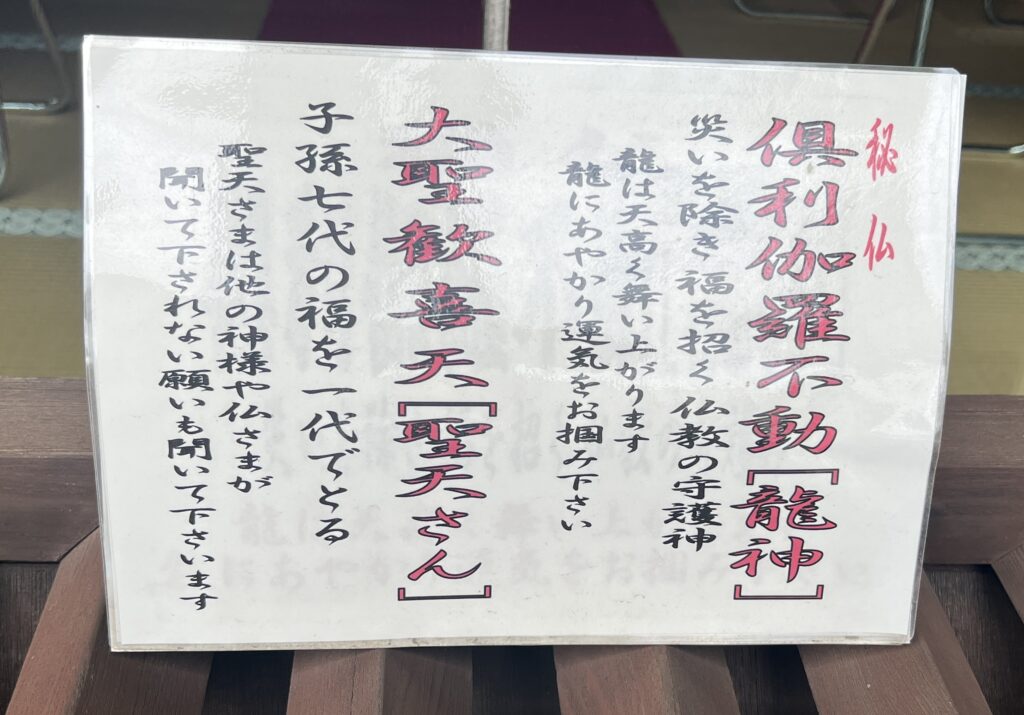 秘仏
倶利伽羅不動[龍神]
災いを除き福を招く仏教の守護神
龍は天高く舞い上がります
龍にあやかり運気をお掴み下さい
大聖歓喜天[聖天さん]
子孫七代の福を一代でとる
聖天さまは他の神様や仏さまが
聞いて下されない願いも聞いて下さいます